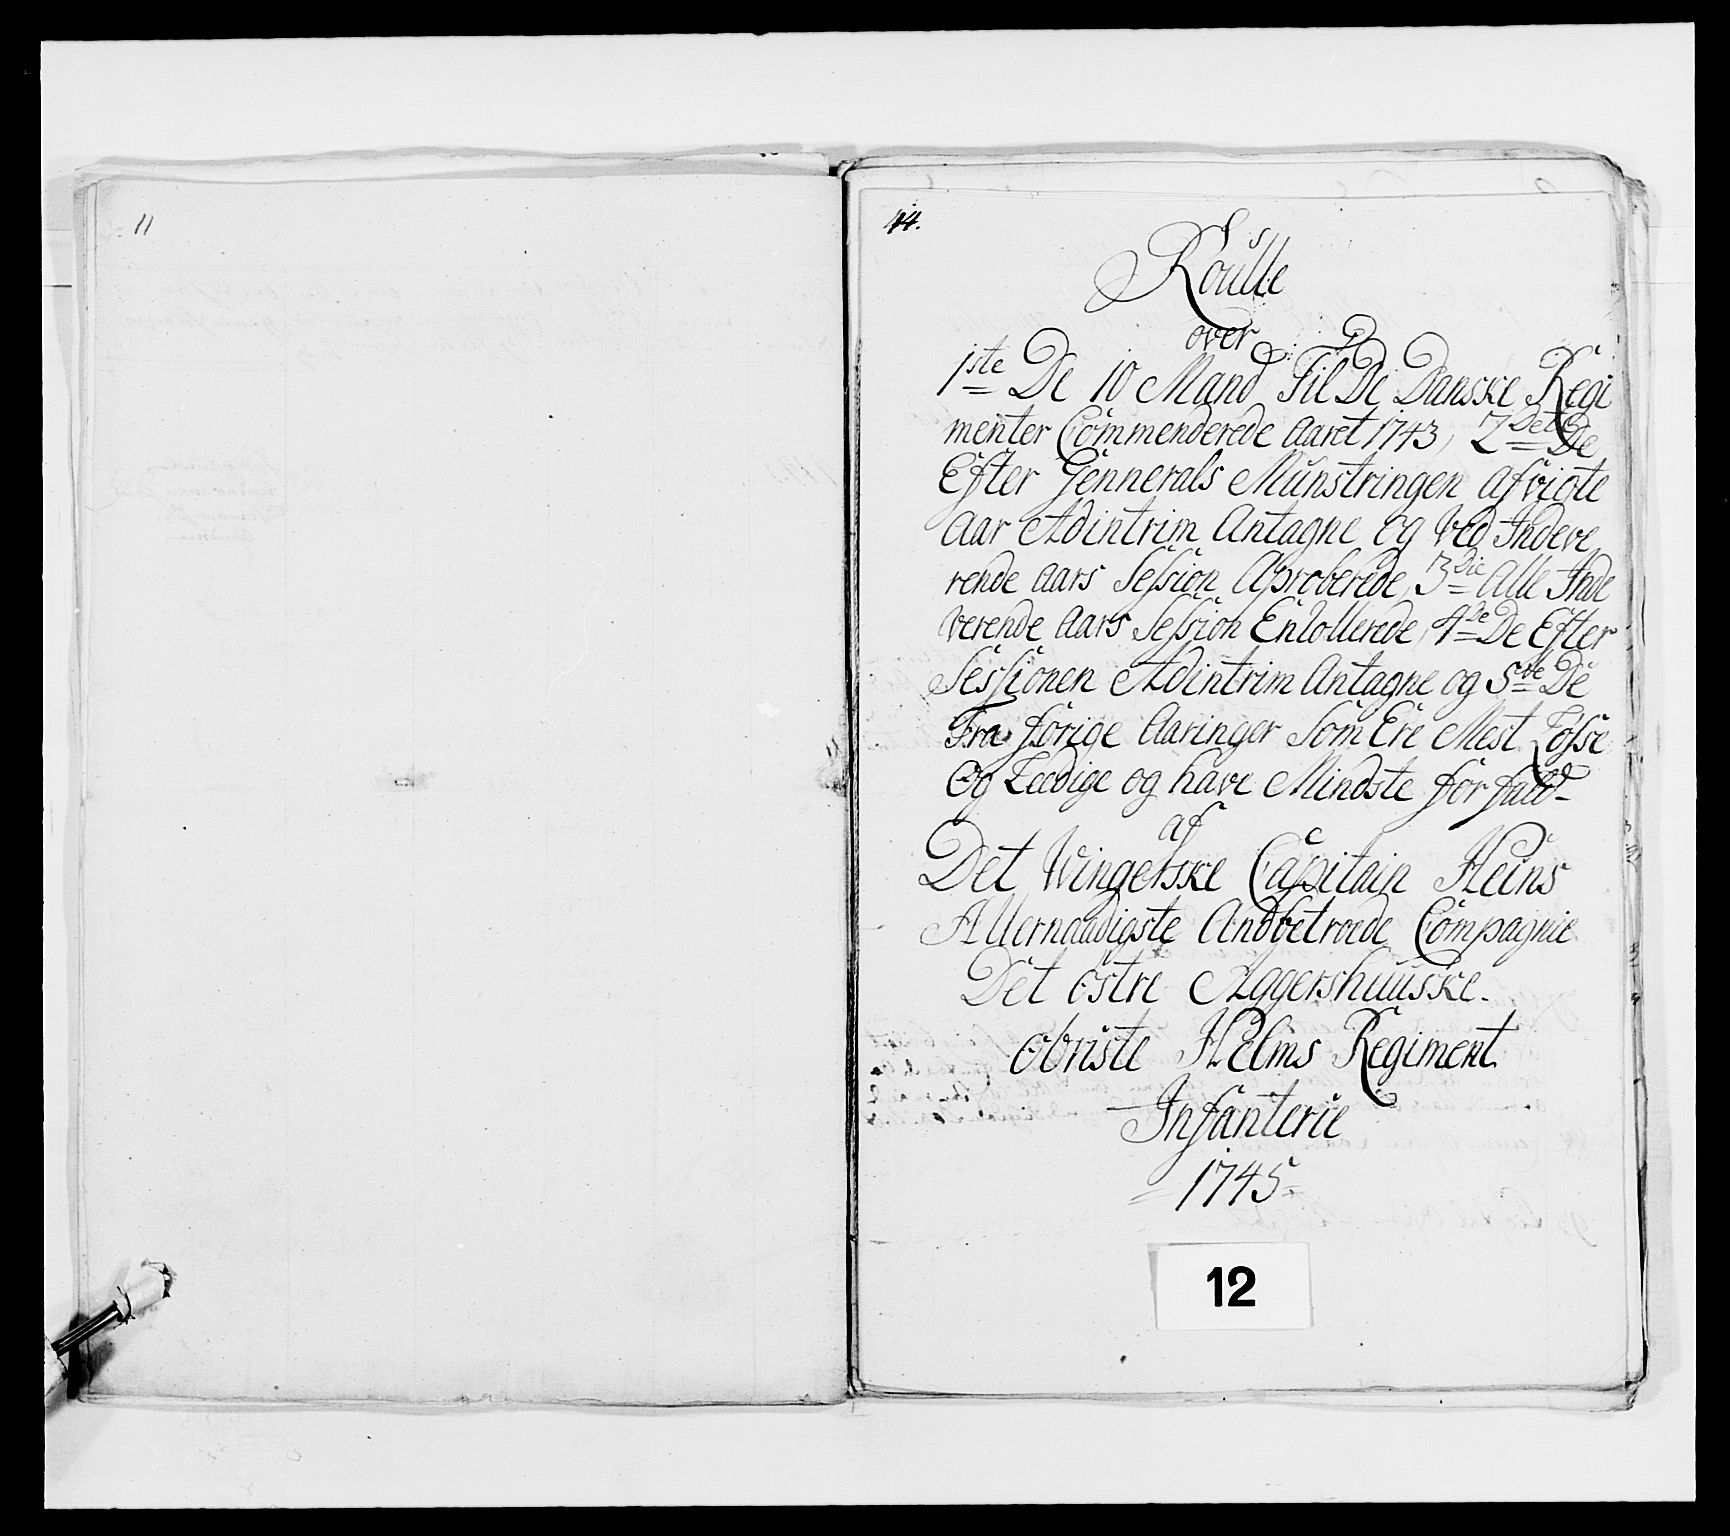 11
14.
Roulle
over
1ste De 10 Mand Til De Danske Regi
menter Commenderede Aaret 1743, 2det De
Efter Gennerals Munstringen afvigte
Aar Adintrim Antagne og Ved Indeve
rende Aars Session Aproberede, 3die Alle Inde
verende Aars Session Enrollerede, 4de De Efter
Sessionen Adintrim Antagne og 5te De
Fra forige Aaringer Som Ere Mest Løsse
Og Leedige og have Mindste forfald
af
Det Wingerske Capitain Heins
Allernaadigste Andbetroede Compagnie
Det østre Aggershuuske.
Obriste Helms Regiment
Infanterie
1745
12